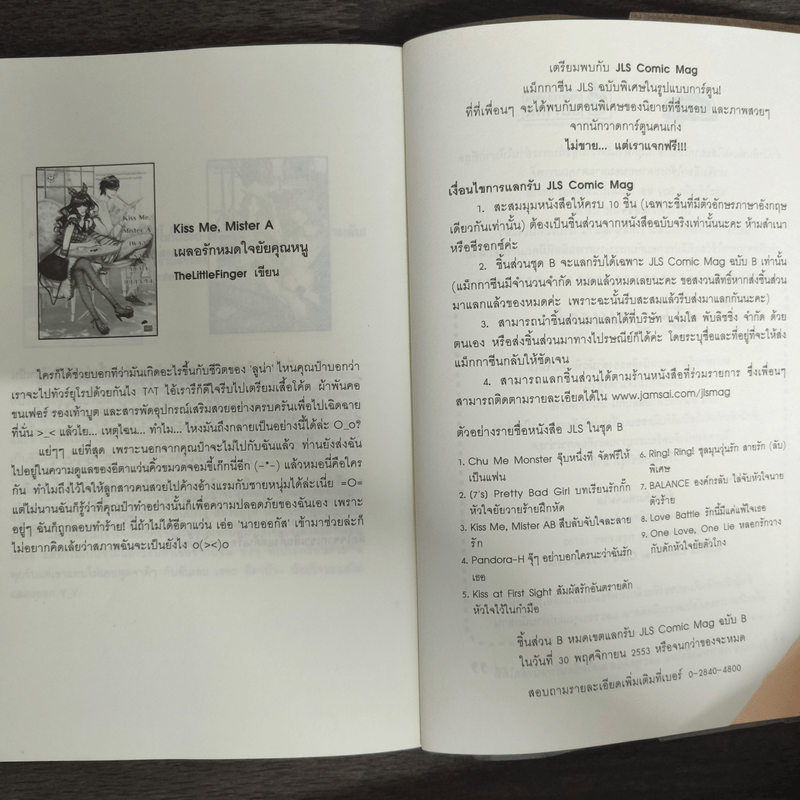 Kiss Me, Mister A
เผลอรักหมดใจยัยคุณหนู
TheLittleFinger เขียน
ใครก็ได้ช่วยบอกทีว่ามันเกิดอะไรขึ้นกับชีวิตของ 'ลูน่า' ไหนคุณป้าบอกว่า
เราจะไปทัวร์ยุโรปด้วยกันไง T^T ไอ้เรารึก็ดีใจรีบไปเตรียมเสื้อโค้ต ผ้าพันคอ
ขนเฟอร์ รองเท้าบูต และสารพัดอุปกรณ์เสริมสวยอย่างครบครันเพื่อไปเฉิดฉาย
ที่นั่น >_< แล้วไย... เหตุไฉน... ทำไม... ไหงมันถึงกลายเป็นอย่างนี้ได้ล่ะ O_o?
แย่ๆๆๆ แย่ที่สุด เพราะนอกจากคุณป้าจะไม่ไปกับฉันแล้ว ท่านยังส่งฉัน
ไปอยู่ในความดูแลของอีตาแว่นคิ้วขมวดจอมขี้เก๊กนี่อีก (-"-) แล้วหมอนี่คือใคร
กัน ทำไมถึงไว้ใจให้ลูกสาวคนสวยไปค้างอ้างแรมกับชายหนุ่มได้ล่ะเนี่ย =O=
แต่ไม่นานฉันก็รู้ว่าที่คุณป้าทำอย่างนั้นก็เพื่อความปลอดภัยของฉันเอง เพราะ
อยู่ๆ ฉันก็ถูกลอบทำร้าย! นี่ถ้าไม่ได้อีตาแว่น เอ่อ 'นายออกัส' เข้ามาช่วยล่ะก็
ไม่อยากคิดเล้ยว่าสภาพฉันจะเป็นยังไง o(><)o
เตรียมพบกับ JLS Comic Mag
แม็กกาซีน JLS ฉบับพิเศษในรูปแบบการ์ตูน!
ที่ที่เพื่อนๆ จะได้พบกับตอนพิเศษของนิยายที่ชื่นชอบ และภาพสวยๆ
จากนักวาดการ์ตูนคนเก่ง
ไม่ขาย... แต่เราแจกฟรี!!!
เงื่อนไขการแลกรับ JLS Comic Mag
1. สะสมมุมหนังสือให้ครบ 10 ชิ้น (เฉพาะชิ้นที่มีตัวอักษรภาษาอังกฤษ
เดียวกันเท่านั้น) ต้องเป็นชิ้นส่วนจากหนังสือฉบับจริงเท่านั้นนะคะ ห้ามสำเนา
หรือซีรอกซ์ค่ะ
2. ชิ้นส่วนชุด B จะแลกรับได้เฉพาะ JLS Comic Mag ฉบับ B เท่านั้น
(แม็กกาซีนมีจำนวนจำกัด หมดแล้วหมดเลยนะคะ ขอสงวนสิทธิ์หากส่งชิ้นส่วน
มาแลกแล้วของหมดค่ะ เพราะฉะนั้นรีบสะสมแล้วรีบส่งมาแลกกันนะคะ)
3. สามารถนำชิ้นส่วนมาแลกได้ที่บริษัท แจ่มใส พับลิชชิ่ง จำกัด ด้วย
ตนเอง หรือส่งชิ้นส่วนมาทางไปรษณีย์ก็ได้ค่ะ โดยระบุชื่อและที่อยู่ที่จะให้ส่ง
แม็กกาซีนกลับให้ชัดเจน
4. สามารถแลกชิ้นส่วนได้ตามร้านหนังสือที่ร่วมรายการ ซึ่งเพื่อนๆ
สามารถติดตามรายละเอียดได้ใน www.jamsai.com/jlsmag
ตัวอย่างรายชื่อหนังสือ JLS ในชุด B
1. Chu Me Monster จุ๊บหนึ่งที จัดฟรีให้
เป็นแฟน
2. (7's) Pretty Bad Girl บทเรียนรักกั๊ก
หัวใจยัยวายร้ายฝึกหัด
3. Kiss Me, Mister AB สืบลับจับใจละลาย
รัก
4. Pandora-H จุ๊ๆ อย่าบอกใครนะว่าฉันรัก
เธอ
5. Kiss at First Sight สัมผัสรักอันตรายดัก
หัวใจไว้ในกำมือ
6. Ring! Ring! ชุลมุนวุ่นรัก สายรัก (ลับ)
พิเศษ
7. BALANCE องค์กรลับ ไล่จับหัวใจนาย
ตัวร้าย
8. Love Battle รักนี้มีแค่แพ้ใจเธอ
9. One Love, One Lie หลอกรักวาง
กับดักหัวใจยัยตัวโกง
ชิ้นส่วน B หมดเขตแลกรับ JLS Comic Mag ฉบับ B
ในวันที่ 30 พฤศจิกายน 2553 หรือจนกว่าของจะหมด
สอบถามรายละเอียดเพิ่มเติมที่เบอร์ 0-2840-4800